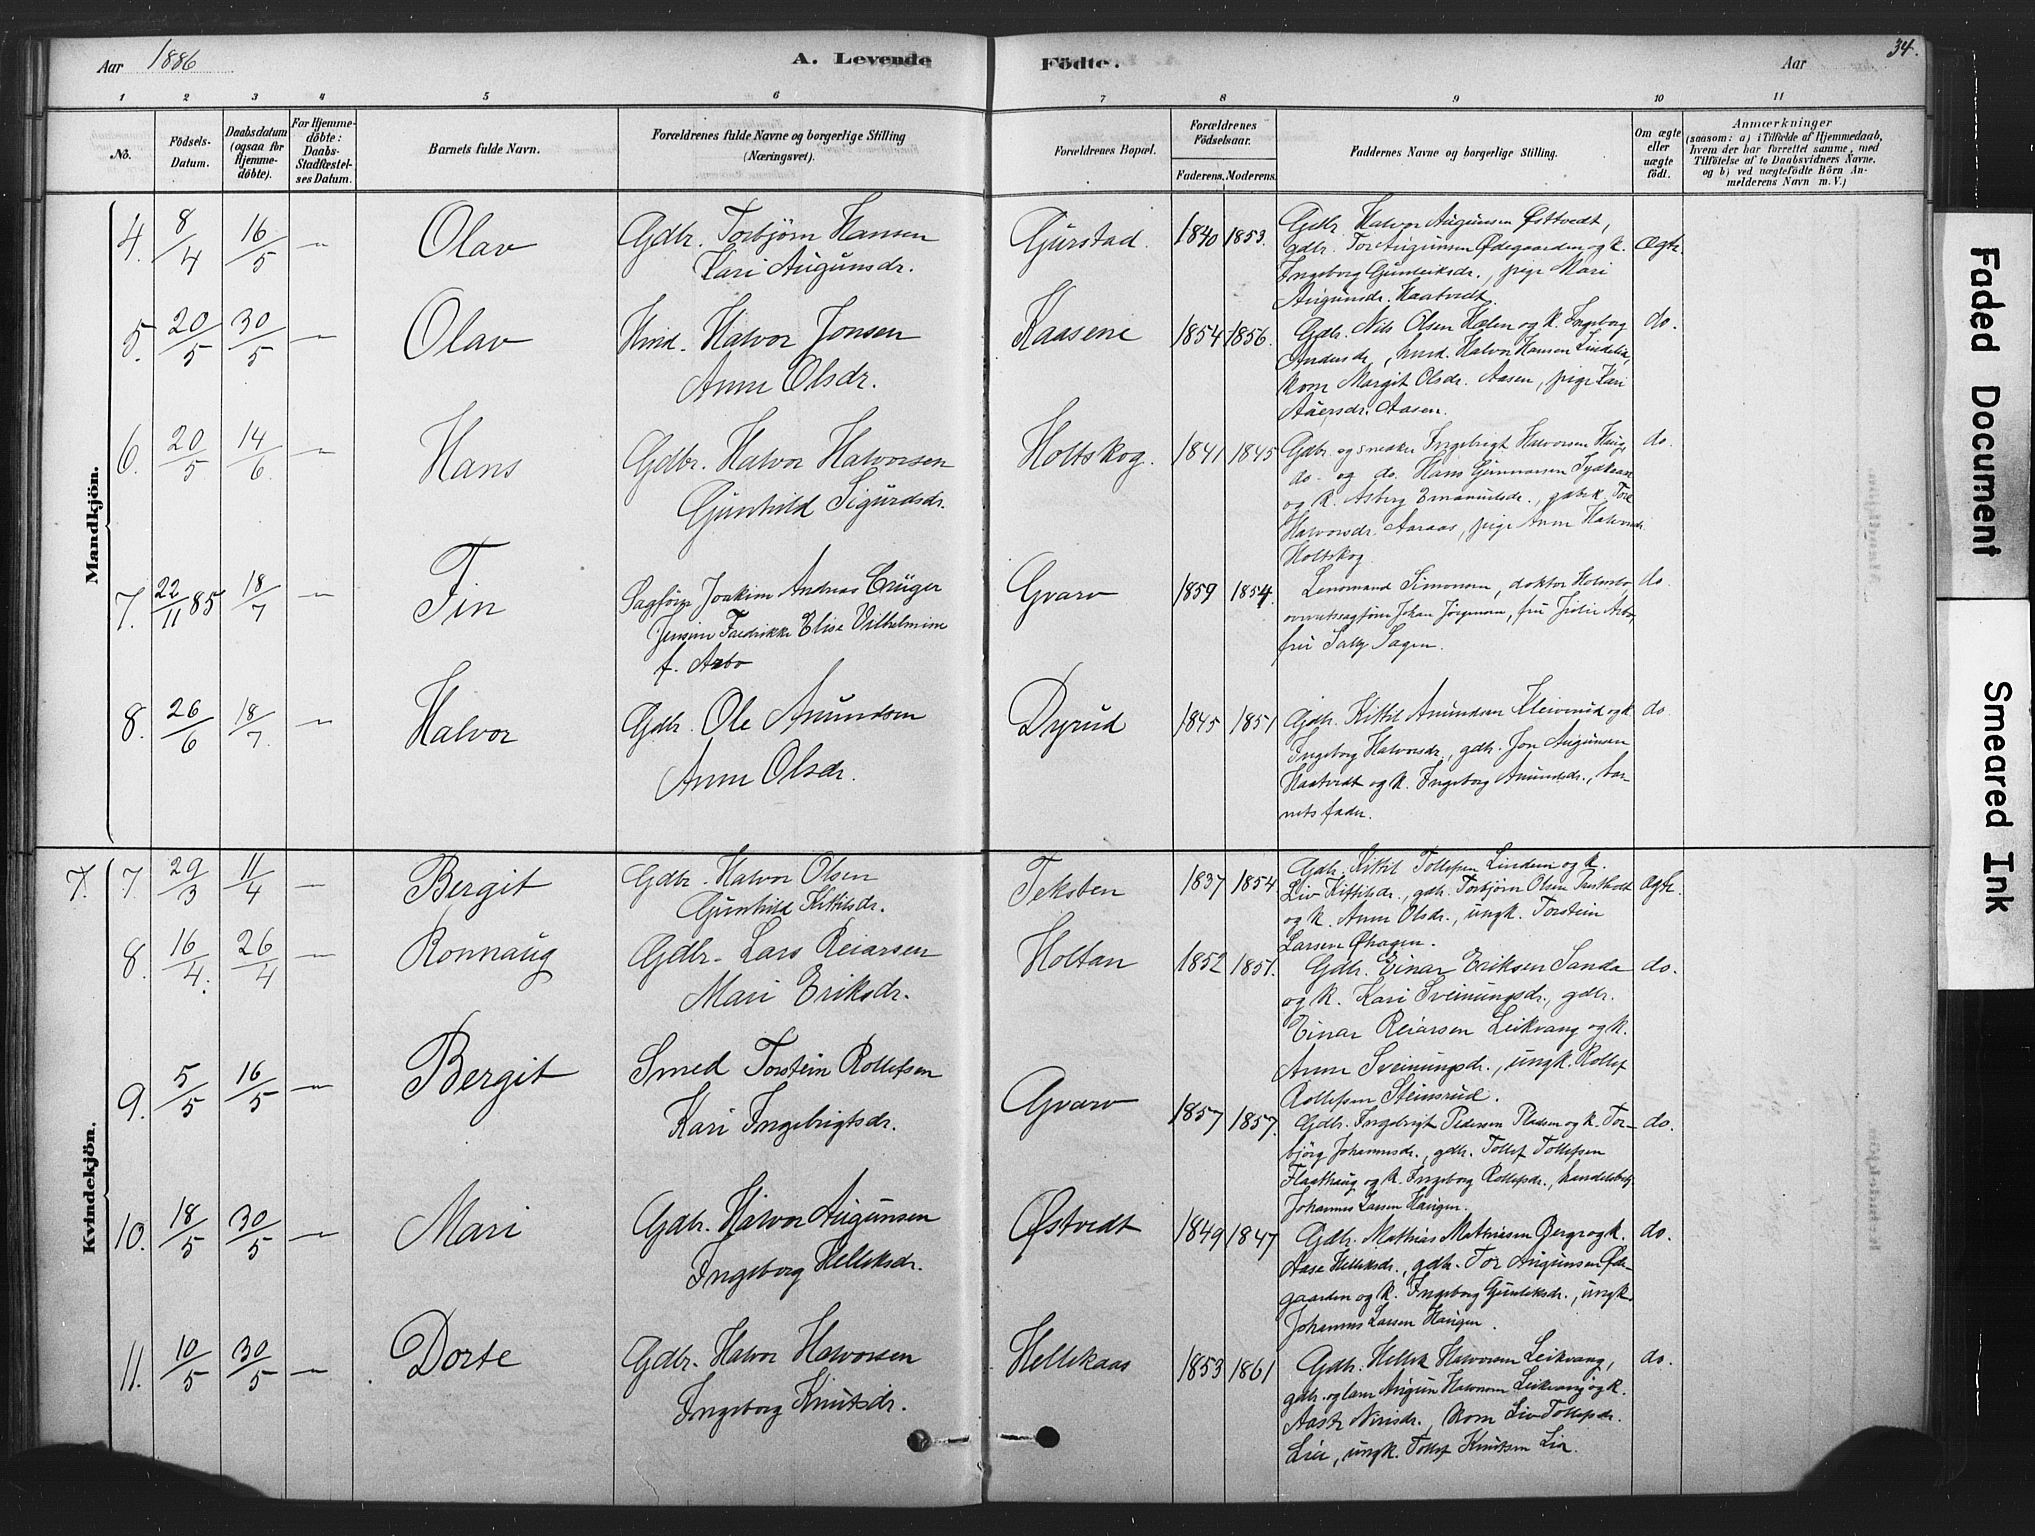 Aar 1886
A. Levende
Födte.
Aar
34.
1 2 3 4 5 6 7 8 9 10 11
No.
Födsels-
Datum.
Daabsdatum
(ogsaa for
Hjemme-
döbte).
For Hjemme-
döbte:
Daabs-
Stadfæstel-
ses Datum.
Barnets fulde Navn.
Forældrenes fulde Navne og borgerlige Stilling
(Næringsvei).
Forældrenes Bopæl.
Forældrenes
Födselsaar.
Faderens. Moderens.
Faddernes Navne og borgerlige Stilling.
Om ægte
eller
uægte
födt.
Anmærkninger
(saasom: a) i Tilfælde af Hjemmedaab,
hvem der har forrettet samme, med
Tilföielse af to Daabsvidners Navne.
og b) ved uægtefödte Börn An-
melderens Navn m.V.)
Mandkjön.
4. 8/4 16/5 — Olav
Gdbr. Torbjörn Hansen
Kari Augunsdr.
Gurstad. 1840 1853.
Gdbr. Halvor Augunsen Østtvedt,
gdbr. Tor Augunsen Ødegaarden og k.
Ingeborg Gunleiksdr., pige Mari
Augunsdr. Haatvedt.
Ægte.
5. 20/5 30/5 — Olav
Hmd. Halvor Jonsen
Anne Olsdr.
Kaasene 1854 1856.
Gdbr. Nils Olsen Hælen og k. Ingeborg
Andersdr., hmd. Halvor Hansen Lindelid,
kone Margit Olsdr. Aasen, pige Kari
Aasen.
do.
6. 20/5 14/6 — Hans
Gdbr. Halvor Halvorsen
Gunhild Sigurdsdr.
Holtskog. 1841 1845
Gdbr. og snedker Ingebrigt Halvorsen Haug,
do. og do. Hans Gunnarsen
og k. Asberg Emanuelsdr., gdbr.k. Tore
Halvorsdr. Aaraas, pige Anne Halvorsdr.
Holtskog
do.
7. 22/11 85 18/7 — Fin
Sagförer Joakim Andreas Crüger
Jensine Fredrikke Elise Vilhelmine
f. Arbo
Gvarv 1859 1854.
Lensmand Simonsen, doktor Holmboe,
overretssagförer Johan Jörgensen, frü Julie Arbo,
frü Sally Sagen.
do.
8. 26/6 18/7. — Halvor
Gdbr. Ole Amundsen
Anne Olsdr.
Dyrud 1845 1851
Gdbr. Kittil Amundsen Kleivrud og k.
Ingeborg Halvorsdr., gdbr. Jon Augunsen
Haatvedt og k. Ingeborg Amundsdr., bar-
nets fader.
do.
Kvindekjön.
7. 7. 29/3 11/4 — Bergit
Gdbr. Halvor Olsen
Gunhild Kittilsdr.
Teksben 1837 1854
Gdbr. Kittil Tollefsen Linden og k.
Liv Kittilsdr., gdbr. Torbjörn Olsen
og k. Anne Olsdr., ungk. Torstein
Larsen Øhagen.
Ægte.
8. 16/4. 26/4 — Ronnaug
Gdbr. Lars Reiarsen
Mari Eriksdr.
Holtan 1852 1851.
Gdbr. Einar Eriksen Sanda
og k. Kari Sveinungsdr., gdbr.
Einar Reiarsen Leikvang og k.
Anne Sveinungsdr., ungk. Rollef
Rollefsen Steinsrud.
do.
9. 5/5 16/5 — Bergit
Smed Torstein Rollefsen
Kari Ingebrigtsdr.
Gvarv 1857 1857.
Gdbr. Ingebrigt Pedersen Pladsen og k. Tor-
björg Johannesdr., gdbr. Tollef Tollefsen
Flaathaug og k. Ingeborg Rollefsdr., handelsbetj.
Johannes Larsen Haugen.
do.
10. 18/5 30/5 — Mari
Gdbr. Halvor Augunsen
Ingeborg Helleksdr.
Østvedt 1849 1847
Gdbr. Mathias Mathiesen Berge og k.
Aase Helleksdr., gdbr. Tor Augunsen Øde-
gaarden og k. Ingeborg Gunleksdr., ungk.
Johannes Larsen Haugen.
do.
11. 10/5 30/5 — Dorte
Gdbr. Halvor Halvorsen
Ingeborg Knutsdr.
Hellekaas 1853 1861
Gdbr. Hellek Halvorsen Leikvang,
gdbr. og lærer Augun Halvorsen Leikvang og k.
Aaste Nirisdr., kone Liv Tollefsdr.
Lia, ungk. Tollef Knutsen Lia.
do.
Faded Document
Smeared Ink